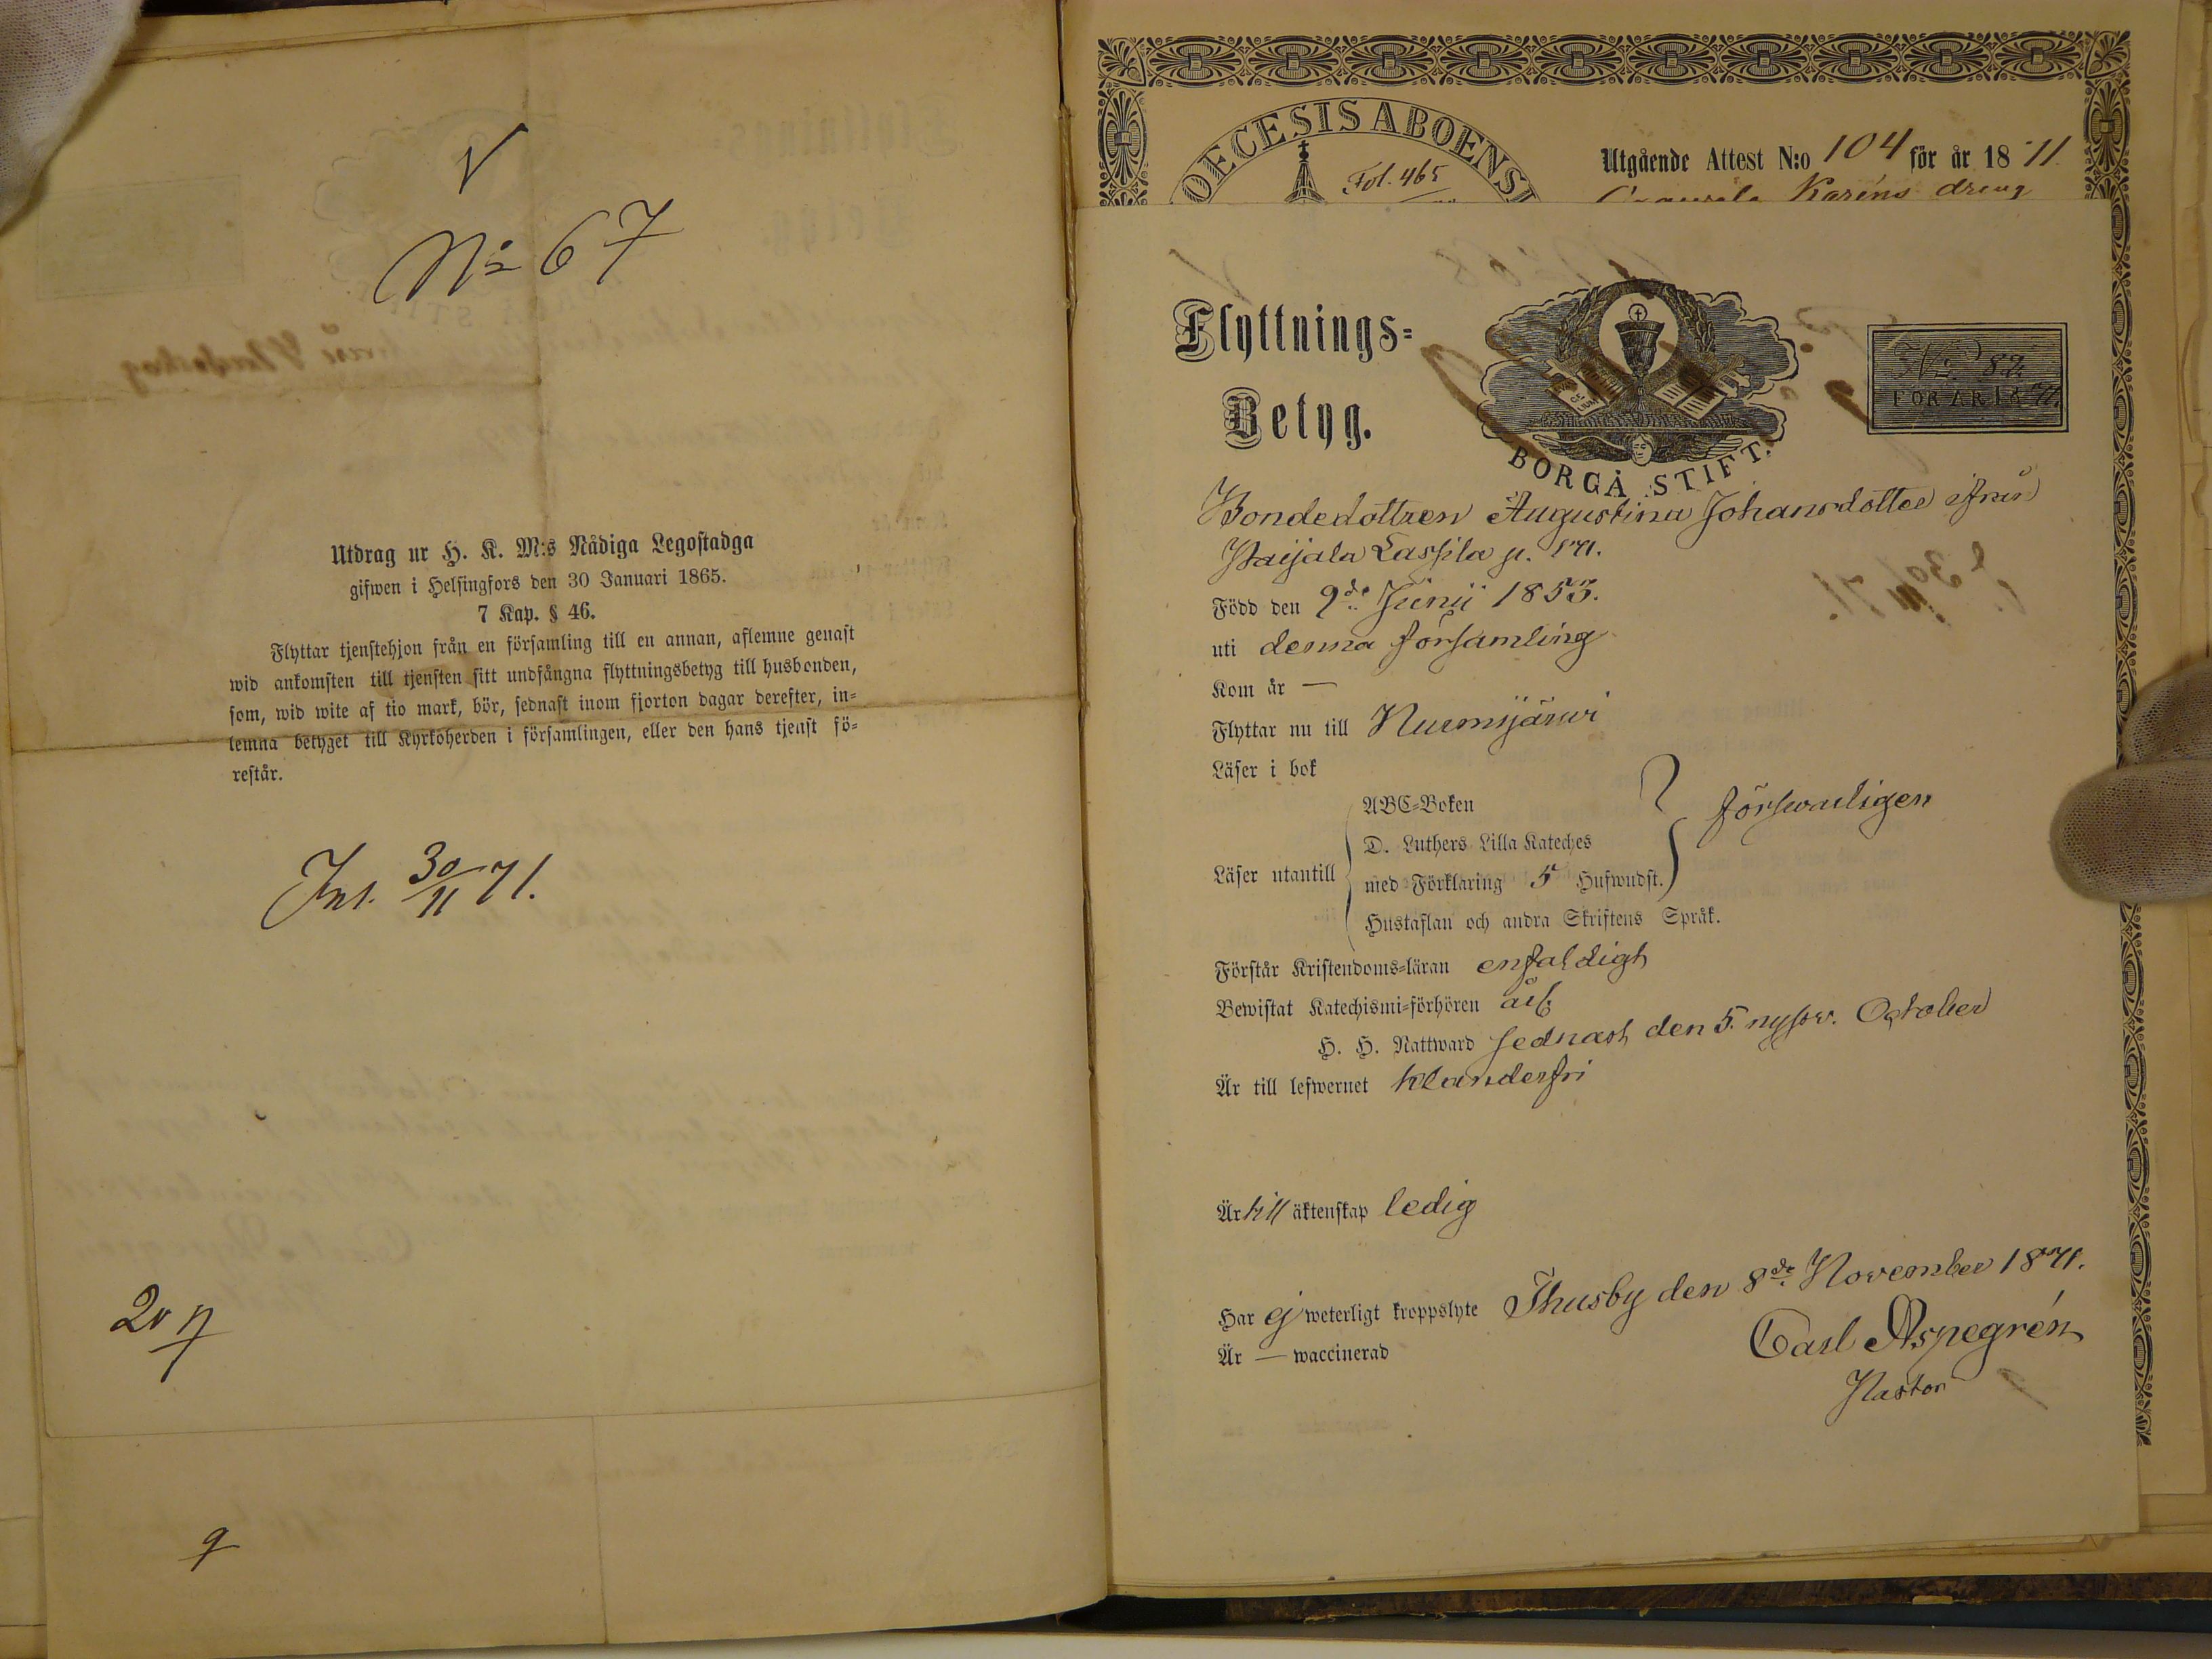 V
No 67
Utdrag ur H. K. M:s Nådiga Legostadga
gifwen i Helsingfors den 30 Januari 1865.
7 Kap. § 46.
Flyttar tjenstehjon från en församling till en annan, aflemne genast
wid ankomsten till tjensten sitt undfångna flyttningsbetyg till husbonden,
som, wid wite af tio mark, bör, sednast inom fjorton dagar derefter, in=
lemna betyget till Kyrkoherden i församlingen, eller den hans tjenst fö=
restår.
Inl. 30/11 71.
9
OECESIS ABOENSI
Fol. 465
Utgående Attest N:o 104 för år 1871.
Karéns dreng
Flyttnings=
Betyg.
BORGÅ STIFT.
No 82
FÖR ÅR 1871.
Bondedottren Augustina Johansdotter ifrån
Paijala Lassila
Född den 9de Junii 1853.
uti denna församling
Kom år —
Flyttar nu till Nurmijärwi
Läser i bok
ABC=Boken
försvarligen
D. Luthers Lilla Kateches
Läser utantill
med Förklaring 5 Hufwudst.
Hustaflan och andra Skriftens Språk.
Förstår Kristendoms=läran enfaldigt
Bewistat Katechismi=förhören
H. H. Nattward sednast den 5. October
Är till lefwernet klanderfri
Är till äktenskap ledig
Har ej weterligt kroppslyte Thusby den 8de November 1871.
Är — waccinerad
Carl Aspegrén
Pastor